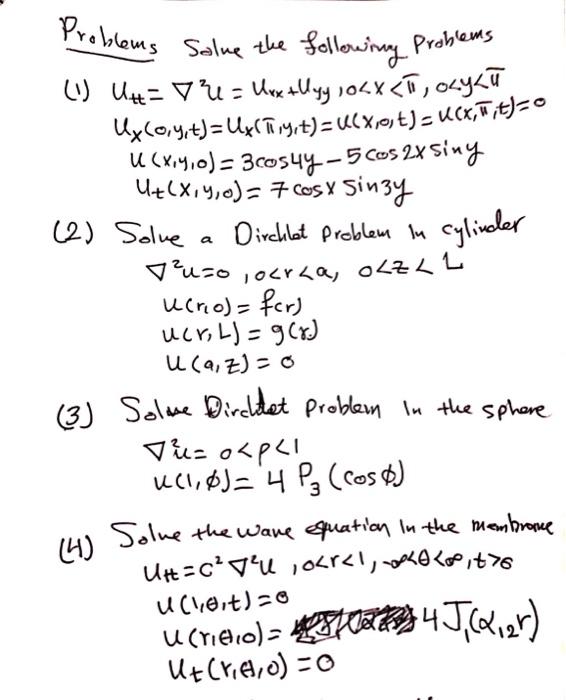 Problems Solve the following Problems
(1) Utt = ∇²u = Uxx + Uyy, 0<x<π, 0<y<π
Ux(0,y,t) = Ux(π,y,t) = U(x,0,t) = U(x,π,t) = 0
U(x,y,0) = 3cos4y – 5cos2x siny
Ut(x,y,0) = 7cosx sin3y
(2) Solve a Dirchlet Problem In cylinder
∇²u=0, 0<r<a, 0<z<L
u(r,0) = f(r)
u(r,L) = g(r)
u(a,z) = 0
(3) Solve Dirchlet Problem In the sphere
∇²u= 0<ρ<1
u(1,φ) = 4 P₃(cosφ)
(4) Solve the wave equation In the membrane
Utt = c²∇²u, 0<r<1, -∞<θ<∞, t>0
u(1,θ,t) = 0
u(r,θ,0) = 4J₁(α₁₂r)
Ut(r,θ,0) = 0